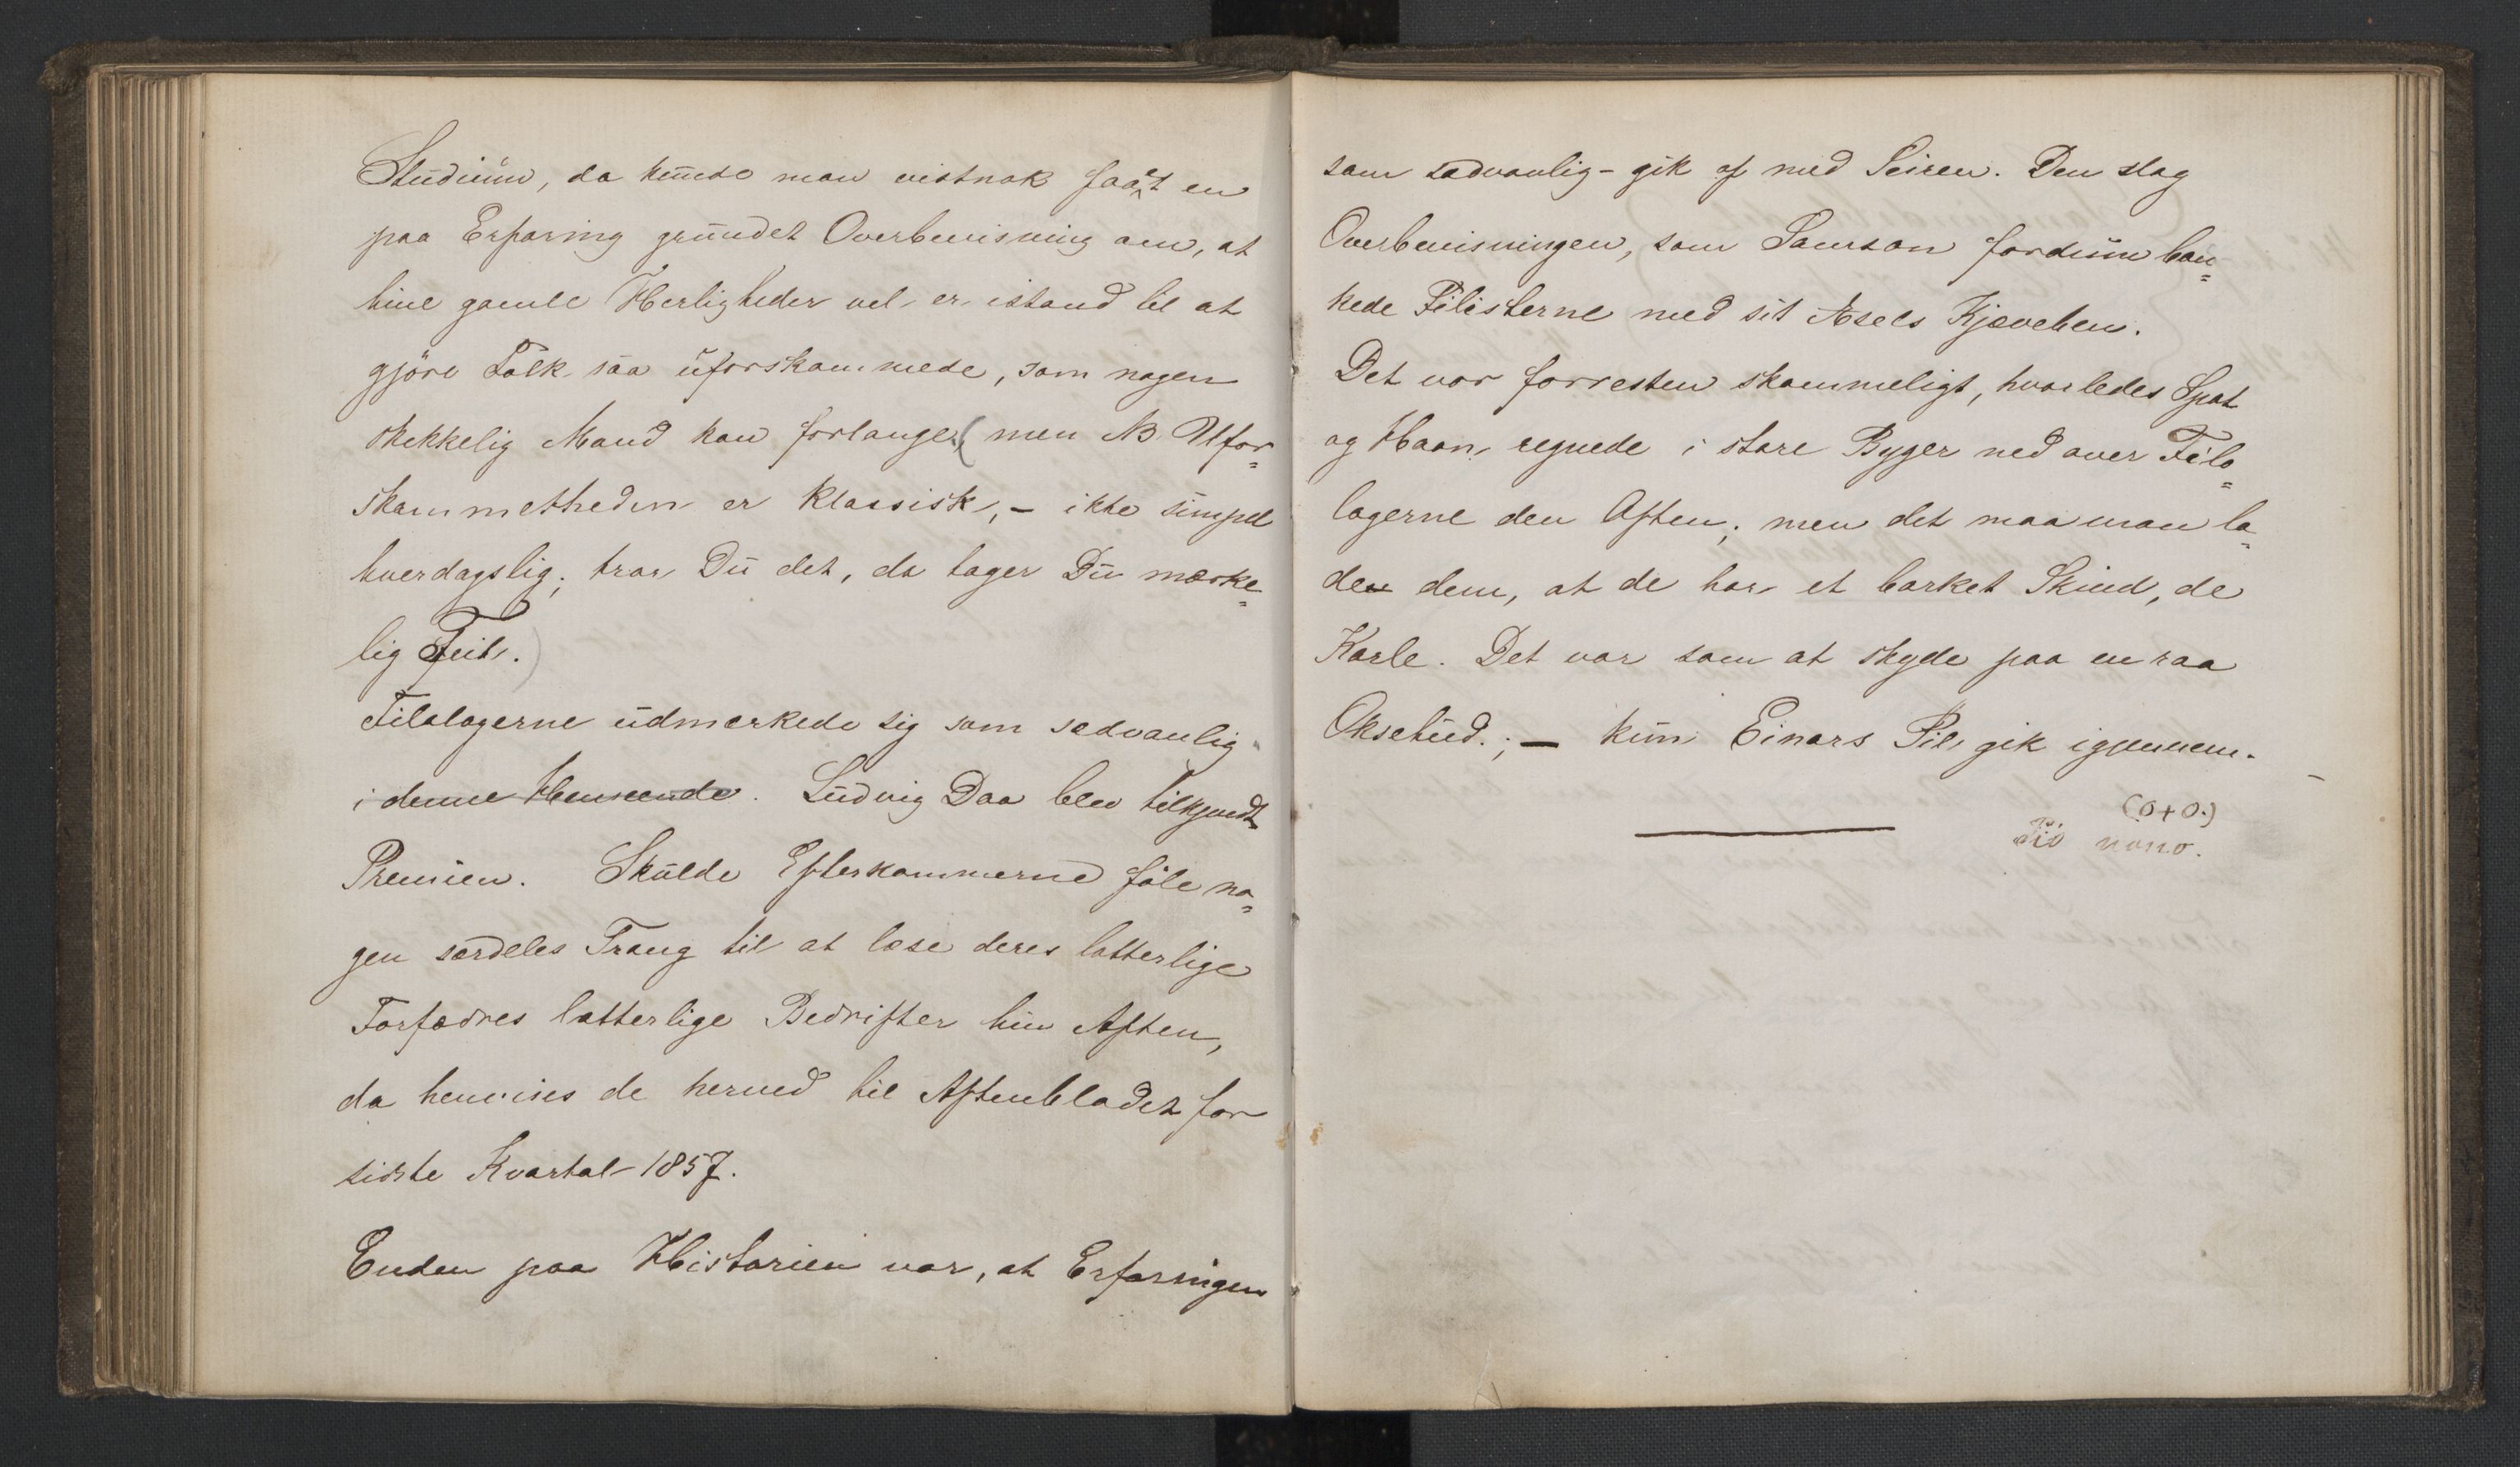 Studium, da kunde man vistnok faaet en
paa Erfaring grundet Overbevisning om, at
hine gamle Herligheder vel er istand til at
gjöre Folk saa uforskammede, som nogen
skikkelig Mand kan forlange, (men NB Ufor=
skammetheden er klassisk, – ikke simpel
hverdagslig; tror Du det, da tager Du mærke=
lig Feil.)
Filologerne udmærkede sig som sædvanlig
i denne Henseende. Ludvig Daa blev tilkjendt
Premien. Skulde Efterkommerne föle no=
gen særdeles Trang til at læse deres latterlige
Forfædres latterlige Bedrifter hin Aften,
da henvises de herved til Aftenbladet for
sidste Kvartal 1857.
Enden paa Historien var, at Erfaringen
som sædvanlig – gik af med Seiren. Den slog
Overbevisningen, som Samson fordum ban=
kede Filisterne med sit Æsels Kjæveben.
Det var forresten skammeligt, hvorledes Spot
og Haan regnede i store Byger ned over Filo=
logerne den Aften; men det maa man la=
de dem, at de har et barket Skind, de
Karle. Det var som at skyde paa en raa
Oksehud.; – kun Einars Pil gik igjennem. –
(O+O.)